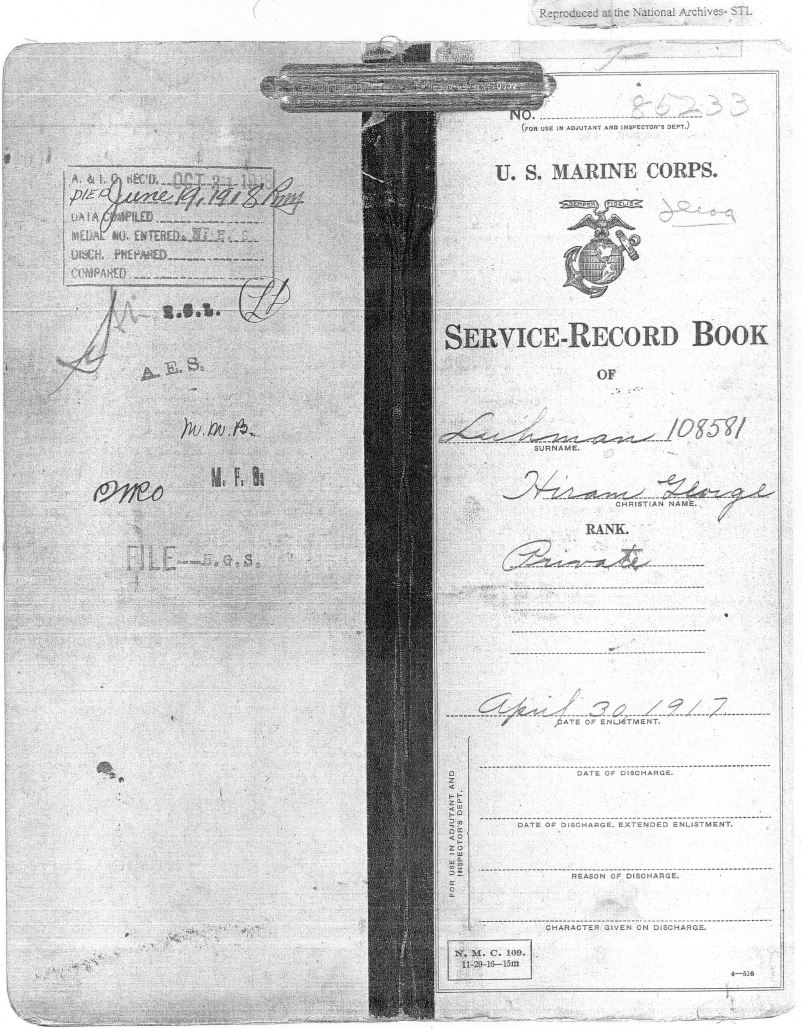 Reproduced at the National Archives- STL
A. & I. O. REC'D. OCT 21
DIED June 19, 1918
DATA COMPILED
MEDAL NO. ENTERED
DISCH. PREPARED
COMPARED
A. E. S.
M. M. B.
M. F. B.
FILE—H. G. S.
NO. 85233
(FOR USE IN ADJUTANT AND INSPECTOR'S DEPT.)
U. S. MARINE CORPS.
SEMPER FIDELIS
SERVICE-RECORD BOOK
OF
Luhman 108581
SURNAME.
Hiram George
CHRISTIAN NAME.
RANK.
Private
April 30, 1917
DATE OF ENLISTMENT.
DATE OF DISCHARGE.
DATE OF DISCHARGE, EXTENDED ENLISTMENT.
REASON OF DISCHARGE.
CHARACTER GIVEN ON DISCHARGE.
FOR USE IN ADJUTANT AND
INSPECTOR'S DEPT.
N. M. C. 109.
11-29-16—15m
4—516